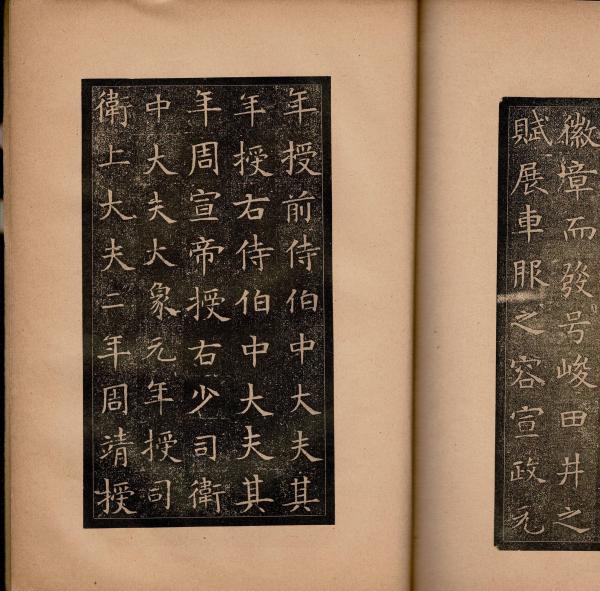 徽璋而發号峻田井之
賦展車服之容宣政元
年授前侍伯中大夫其
年授右侍伯中大夫其
年周宣帝授右少司衛
中大夫大象元年授司
衛上大夫二年周靖授